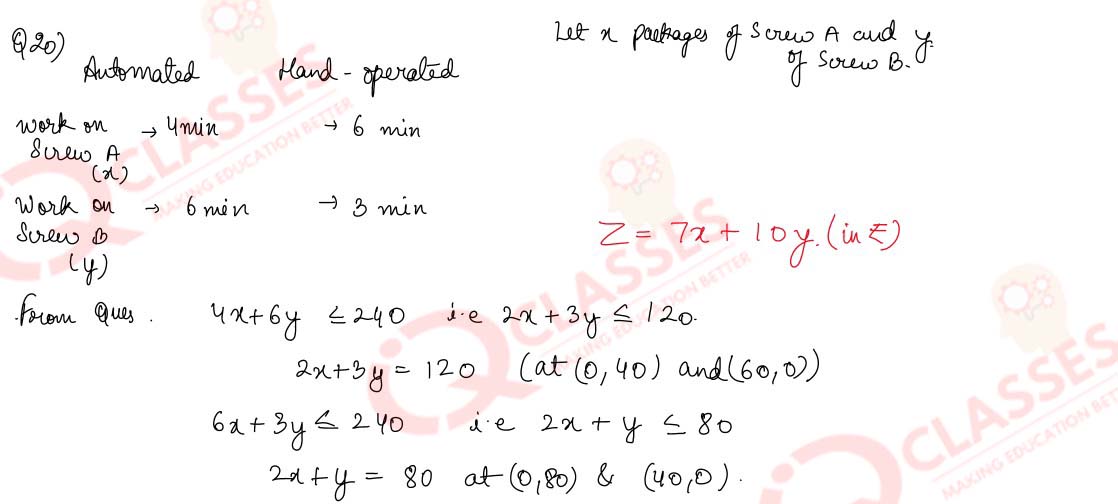 Q20)
Let x packages of Screw A and y
of Screw B.
Automated Hand-operated
Work on → 4min → 6 min
Screw A
(x)
Work on → 6 min → 3 min
Screw B
(y)
Z = 7x + 10y. (in ₹)
From Ques. 4x+6y ≤ 240 i.e 2x + 3y ≤ 120.
2x+3y = 120 (at (0, 40) and (60,0))
6x+3y ≤ 240 i.e 2x + y ≤ 80
2x+y = 80 at (0,80) & (40,0).
IQ CLASSES
MAKING EDUCATION BETTER
IQ CLASSES
MAKING EDUCATION BETTER
IQ CLASSES
MAKING EDUCATION BETTER